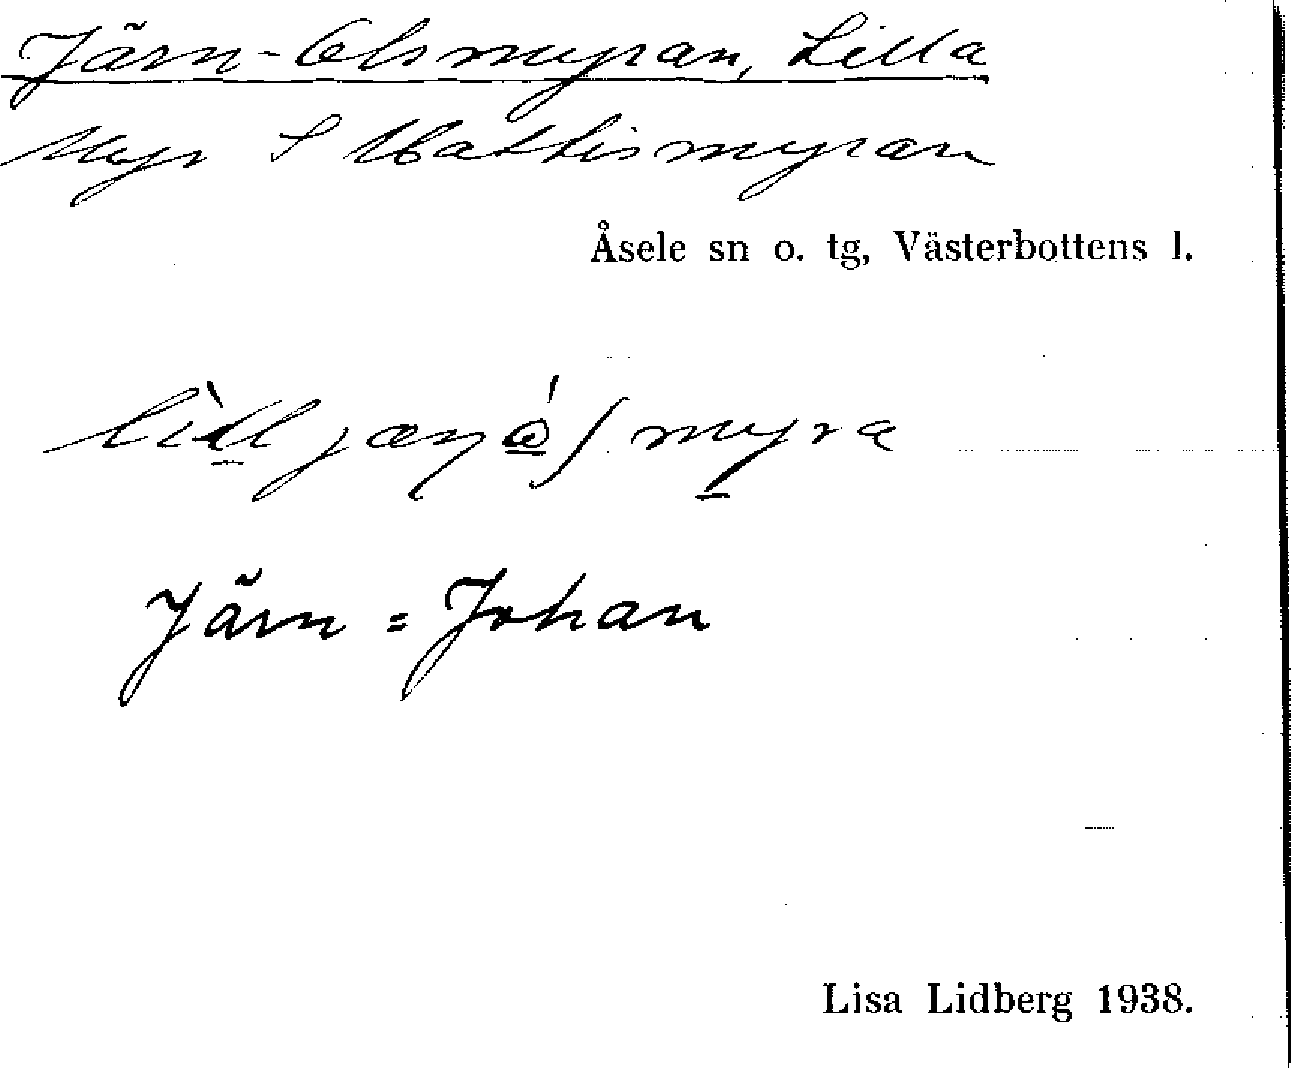 Järn-Olsmyran, Lilla
Myr S Mattismyran
Åsele sn o. tg, Västerbottens l.
Järn = Johan
Lisa Lidberg 1938.